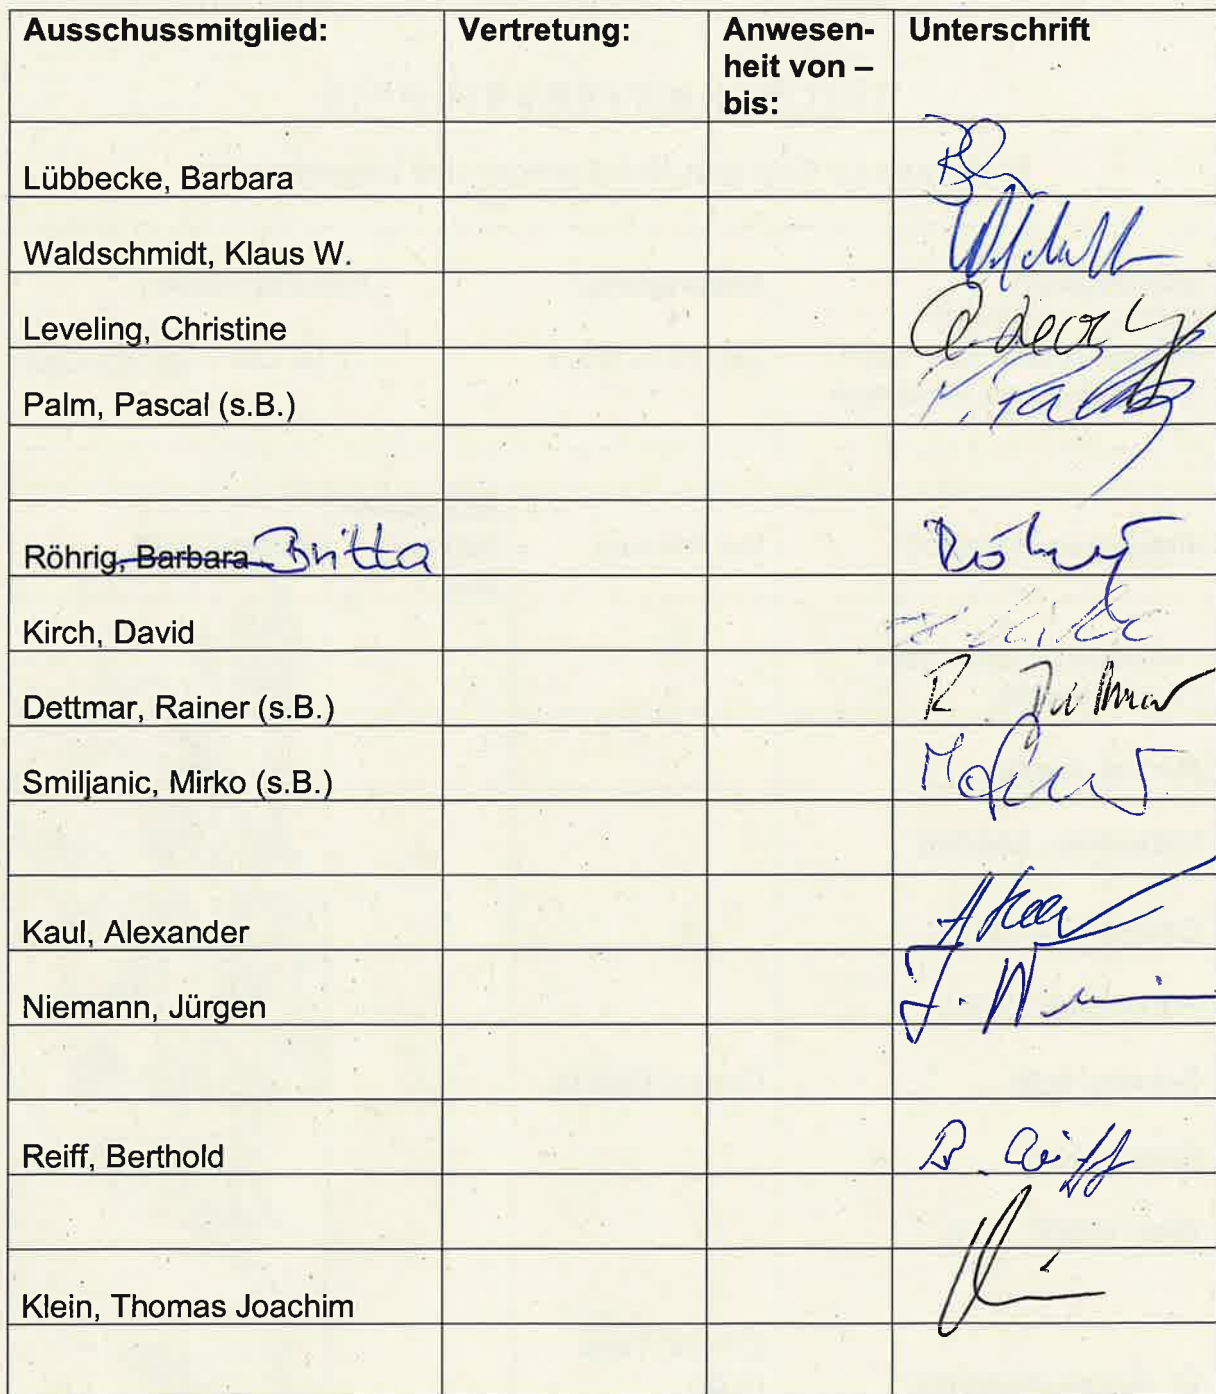 Ausschussmitglied: Vertretung: Anwesen- Unterschrift
heit von –
bis:
Lübbecke, Barbara
Waldschmidt, Klaus W.
Leveling, Christine
Palm, Pascal (s.B.) P. Palm
Röhrig, Barbara Britta Röhrig
Kirch, David
Dettmar, Rainer (s.B.) R. Dettmar
Smiljanic, Mirko (s.B.)
Kaul, Alexander
Niemann, Jürgen
Reiff, Berthold B. Reiff
Klein, Thomas Joachim